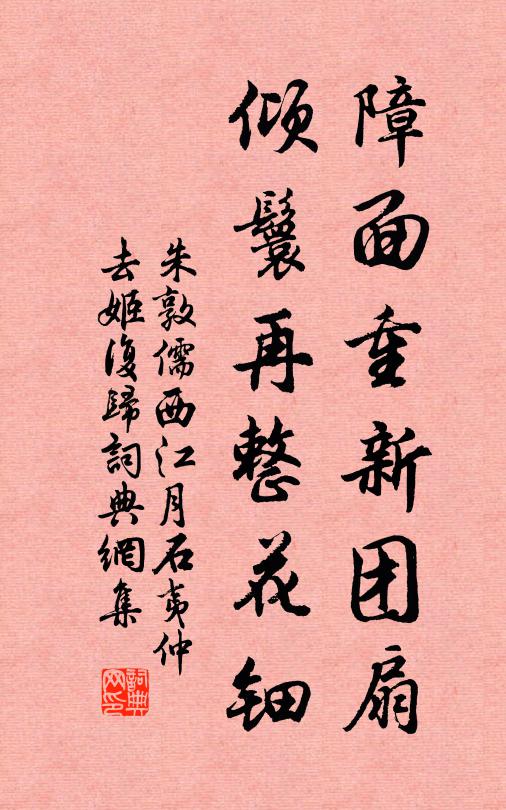 障面重新团扇
倾鬟再整花钿
朱敦儒西江月石夷仲
去姬復歸詞典網集
詞典网印